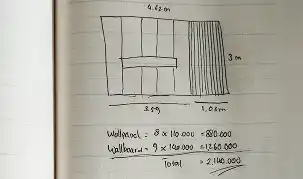 4.62 m
3 m
3.59
1.03m
Wallpanel = 8 x 110.000 = 880.000
Wallboard = 9 x 140.000 = 1260.000
Total = 2.140.000